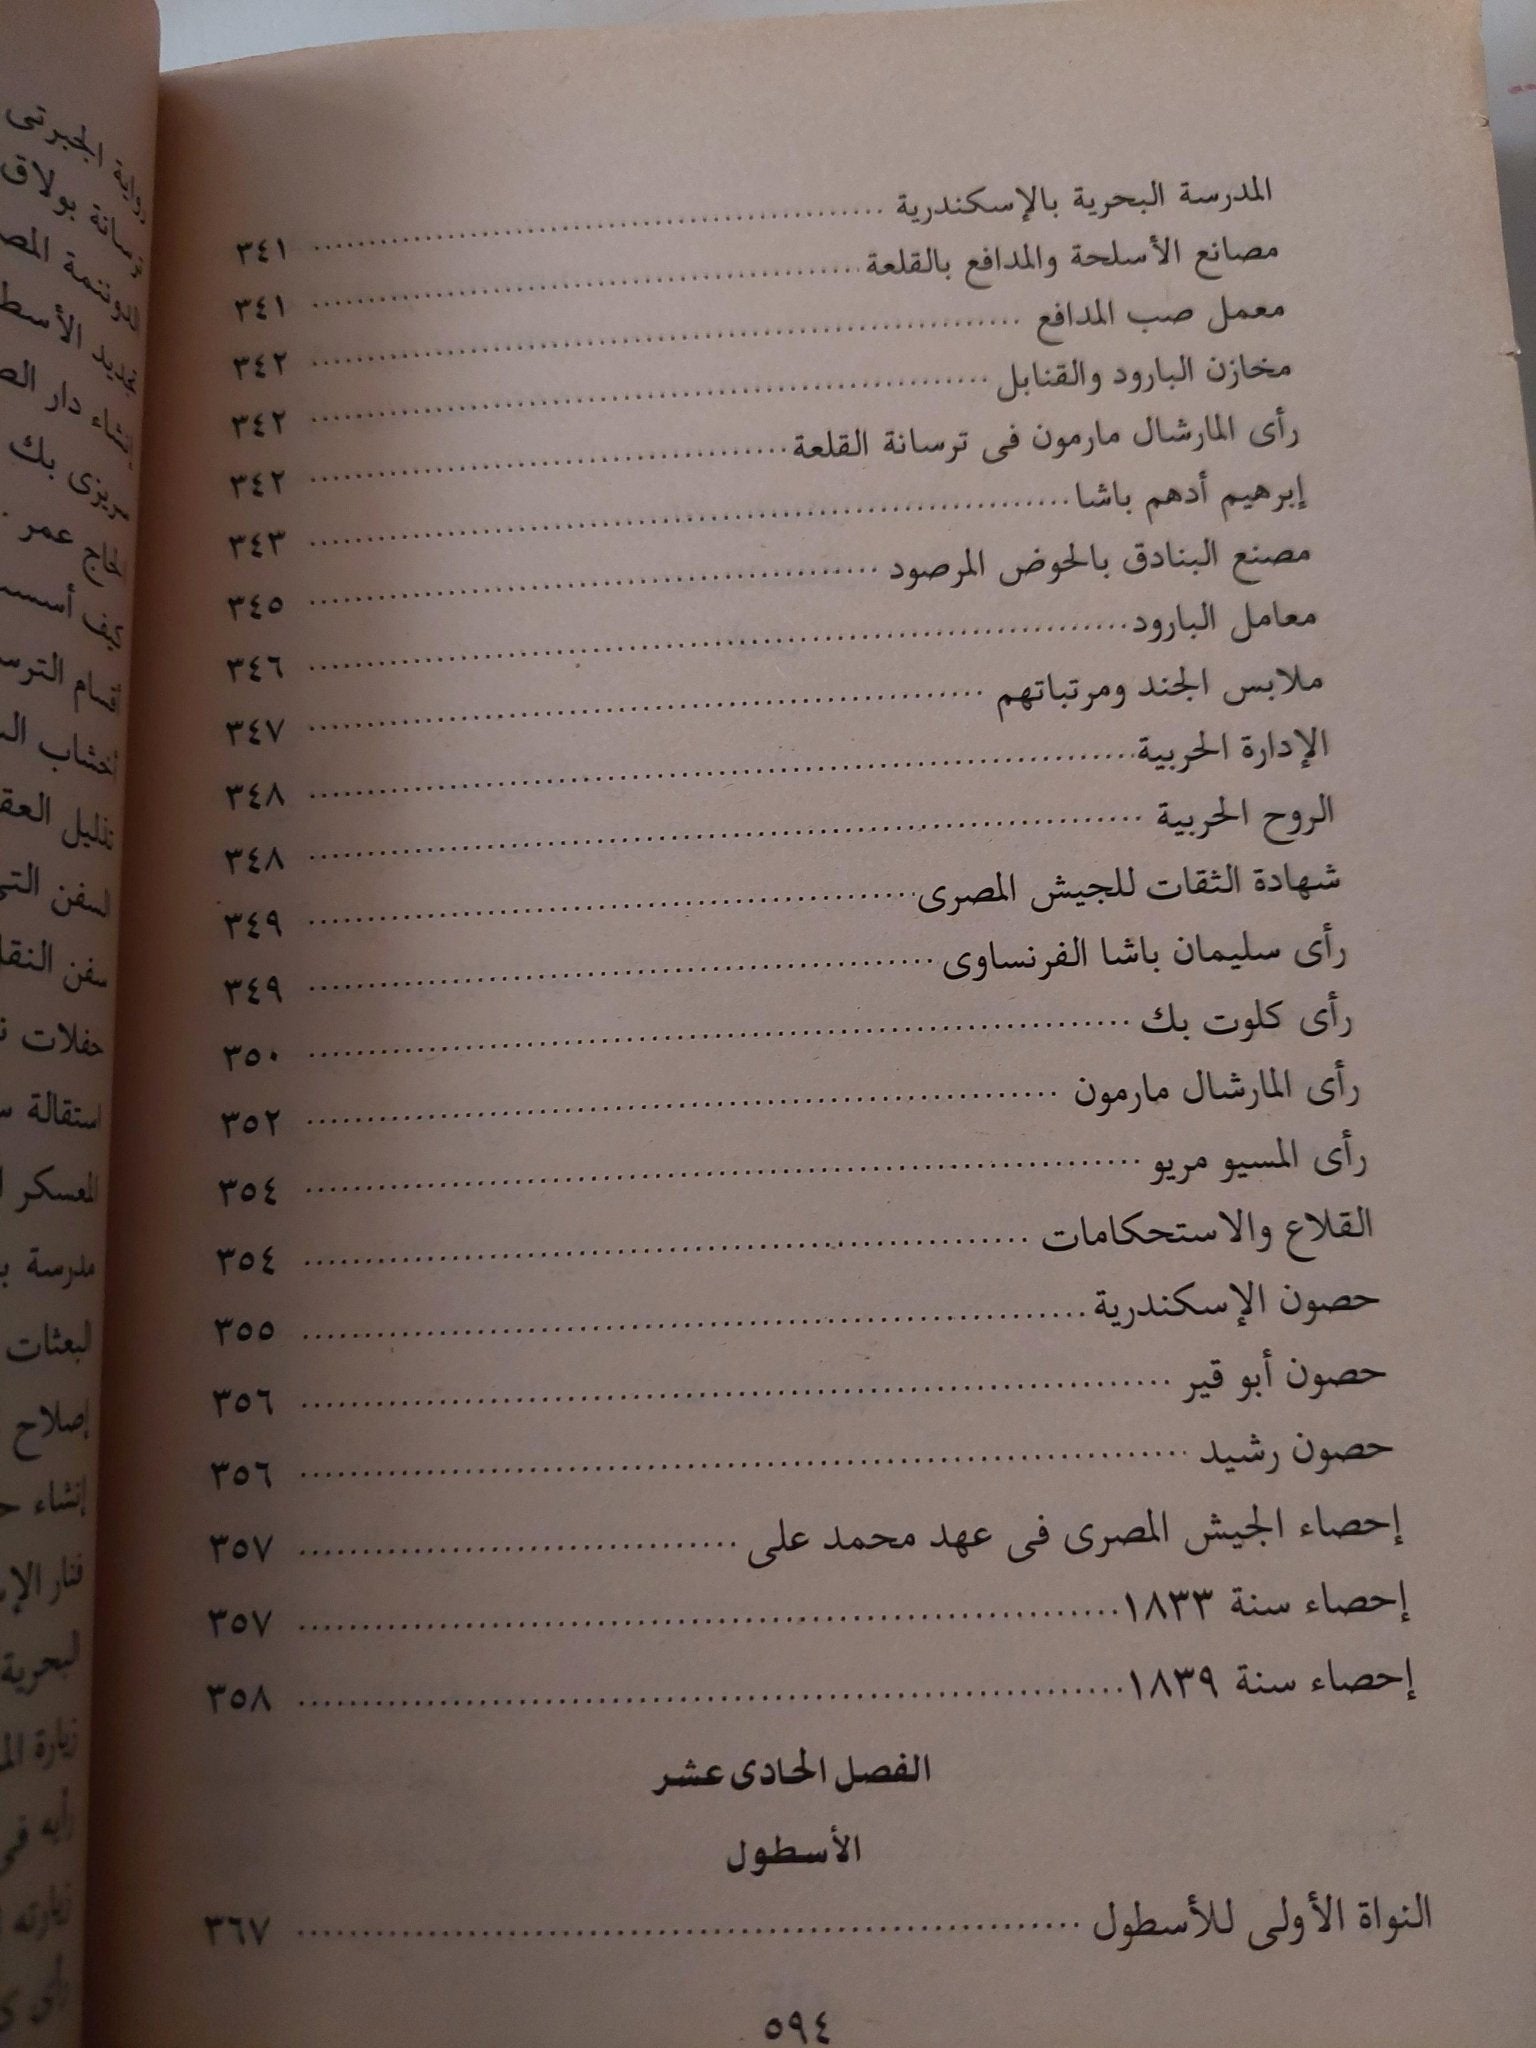 المدرسة البحرية بالإسكندرية ........ ٣٤١
مصانع الأسلحة والمدافع بالقلعة ........ ٣٤١
معمل صب المدافع ........ ٣٤٢
مخازن البارود والقنابل ........ ٣٤٢
رأى المارشال مارمون فى ترسانة القلعة ........ ٣٤٢
إبرهيم أدهم باشا ........ ٣٤٣
مصنع البنادق بالحوض المرصود ........ ٣٤٥
معامل البارود ........ ٣٤٦
ملابس الجند ومرتباتهم ........ ٣٤٧
الإدارة الحربية ........ ٣٤٨
الروح الحربية ........ ٣٤٨
شهادة الثقات للجيش المصرى ........ ٣٤٩
رأى سليمان باشا الفرنساوى ........ ٣٤٩
رأى كلوت بك ........ ٣٥٠
رأى المارشال مارمون ........ ٣٥٢
رأى المسيو مريو ........ ٣٥٤
القلاع والاستحكامات ........ ٣٥٤
حصون الإسكندرية ........ ٣٥٥
حصون أبو قير ........ ٣٥٦
حصون رشيد ........ ٣٥٦
إحصاء الجيش المصرى فى عهد محمد على ........ ٣٥٧
إحصاء سنة ١٨٣٣ ........ ٣٥٧
إحصاء سنة ١٨٣٩ ........ ٣٥٨
الفصل الحادى عشر
الأسطول
النواة الأولى للأسطول ........ ٣٦٧
٥٩٤
الجبرتى
بولاق
دار
بك
عمر
كيف
أقسام
أخشاب
سفن
حفلات
استقالة
مدرسة
إصلاح
إنشاء
زيارة